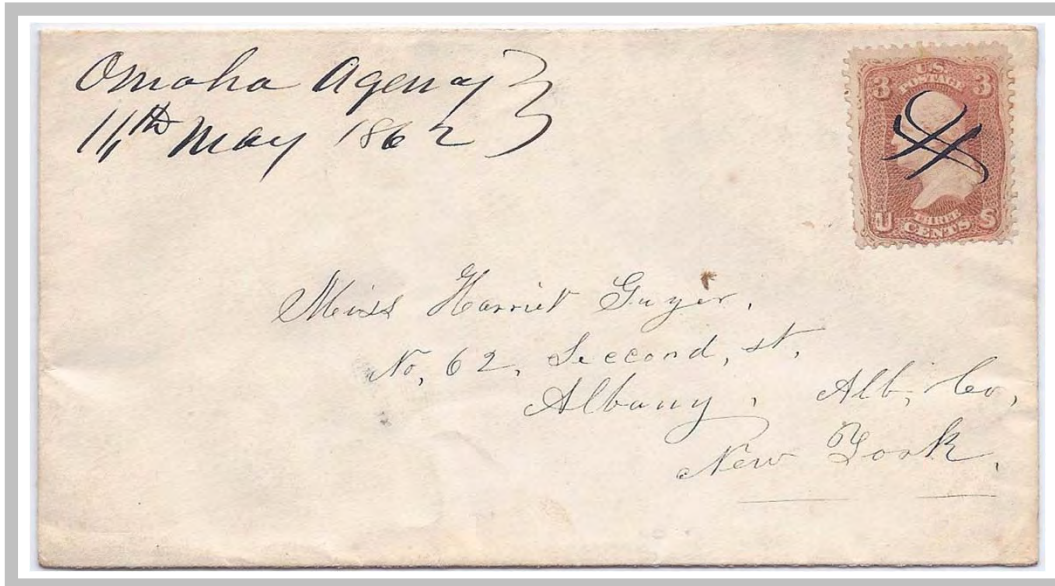 Omaha Agency
11th May 1862
U.S.
POSTAGE
3 3
THREE
CENTS
U S
Miss Harriet Guyer,
No, 62, Seccond, st,
Albany, Alb, Co,
New York.